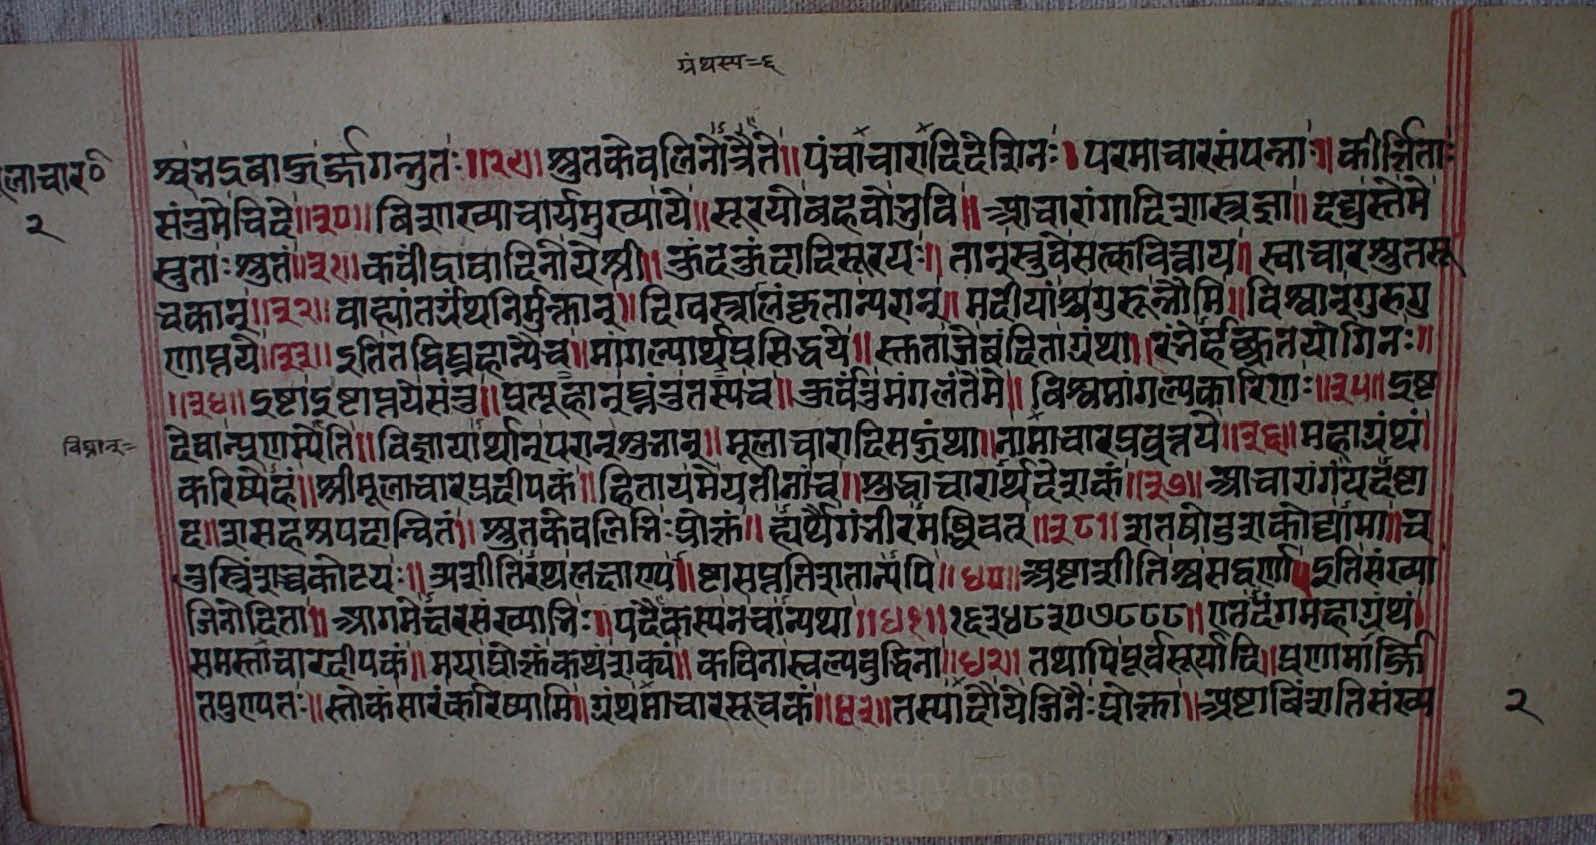 ग्रंथस्य=६
मूलाचार०
२
श्च भद्रबाहूर्जगन्नुतः ॥२९॥ श्रुतकेवलिनोत्रैते ॥ पंचाचारादिदेशिनः । परमाचारसंपन्ना ॥ कीर्त्तिताः
संतु मे चिदे ॥३०॥ विशाखाचार्यमुख्या ये ॥ सूरयो बहवो भुवि ॥ आचारांगादिशास्त्रज्ञा ॥ दद्युस्ते मे
स्तुताः श्रुतं ॥३१॥ कवींद्रा वादिनो ये श्री ॥ कुंदकुंदादिसूरयः ॥ तान् स्तुवे सत्कवित्वाय ॥ स्वाचारश्रुतसू
चकान् ॥३२॥ बाह्यांतर्ग्रंथनिर्मुक्तान् ॥ दिग्वस्त्रालंकृतान्परान् ॥ मदीयांश्च गुरून्नौमि ॥ विश्वान् गुरुगु
णाप्तये ॥३३॥ इति तद्विघ्नहान्यै च ॥ मांगल्यार्थप्रसिद्धये ॥ स्तुता ये वंदिता ग्रंथा ॥ रंभेर्हच्छ्रुतयोगिनः ॥
॥३४॥ इष्टा इष्टाप्तये संतु ॥ प्रत्यूहान् घ्नंतु तस्य च ॥ कुर्वंतु मंगलं ते मे ॥ विश्वमांगल्यकारिणः ॥३५॥ इष्ट
विघ्नान्=
देवान्प्रणम्येति ॥ विज्ञायार्थान् परान् श्रुतान् ॥ मूलाचारादिसद्ग्रंथा ॥ नामाचारप्रवृत्तये ॥३६॥ महाग्रंथं
करिष्येहं ॥ श्रीमूलाचारप्रदीपकं ॥ हिताय मे यतीनां च ॥ शुद्धाचारार्थदेशकं ॥३७॥ आचारांगं यदष्टा
द ॥ शसहश्रपदान्वितं ॥ श्रुतकेवलिभिः प्रोक्तं ॥ ह्यर्थैर्गंभीरमब्धिवत् ॥३८॥ शतषोडशकोट्यामा ॥ च
तुस्त्रिंशच्चकोटयः ॥ त्र्यशीतिरथलक्षाण्य ॥ ष्टासप्ततिशतान्यपि ॥४०॥ अष्टाशीतिश्च सद्वर्णा इति संख्या
जिनोदिता ॥ आगमेक्षरसंख्याभिः ॥ पदैकस्य न चान्यथा ॥४१॥ १६३४८३०७८८८ ॥ एतदंगमहाग्रंथं ॥
समस्ताचारदीपकं ॥ मया प्रोक्तं कथं शक्यं ॥ कविना स्वल्पबुद्धिना ॥४२॥ तथापि पूर्वसूर्यादि ॥ प्रणामार्जि
तपुण्यतः ॥ स्तोकं सारं करिष्यामि ॥ ग्रंथमाचारसूचकं ॥४३॥ तस्यादौ ये जिनैः प्रोक्ता ॥ अष्टाविंशतिसंख्य
२